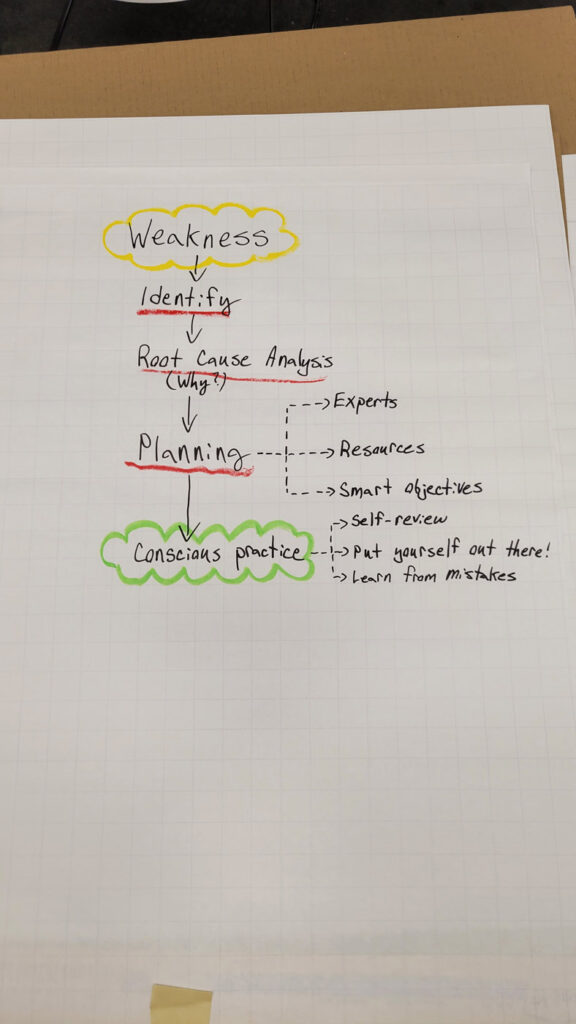 Weakness
Identify
Root Cause Analysis
(Why?)
Experts
Planning
Resources
Smart objectives
Self-review
Conscious practice
Put yourself out there!
Learn from mistakes